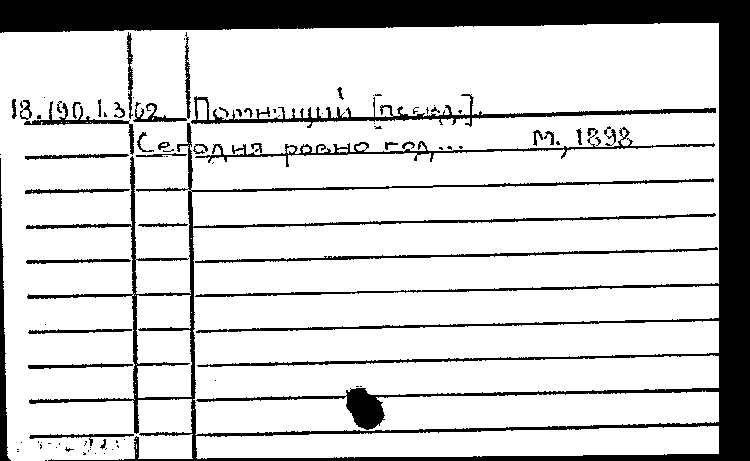 18.190.1.302. Помнящий [псевд.].
Сегодня ровно год... М., 1898